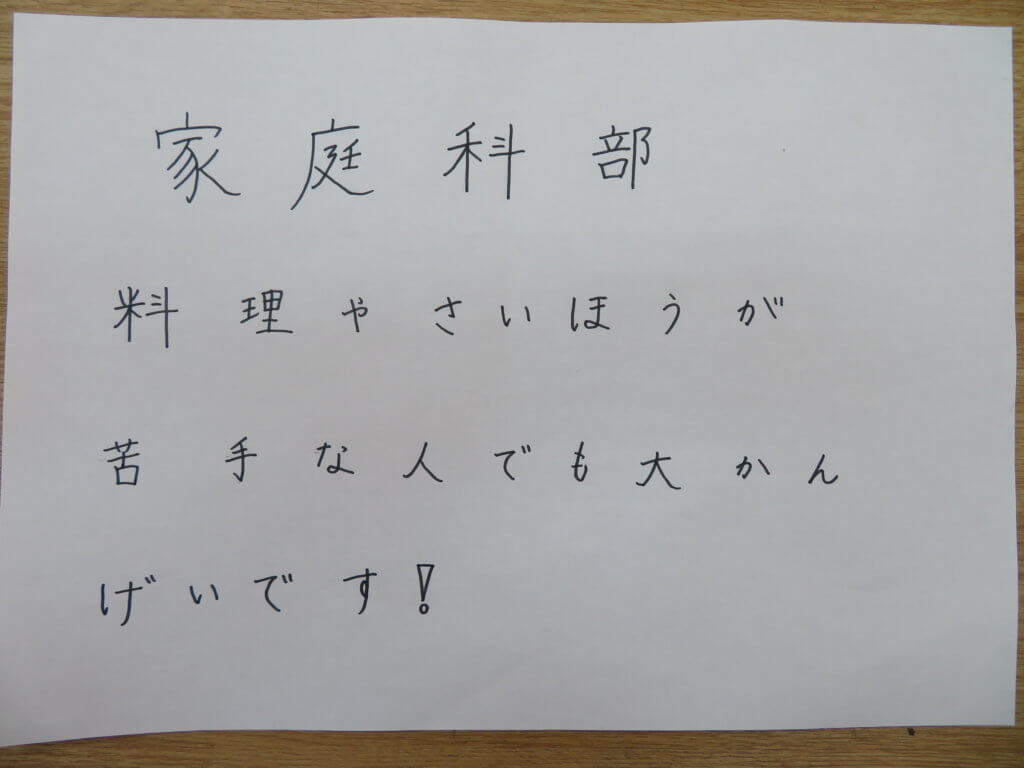 家庭科部
料理やさいほうが
苦手な人でも大かん
げいです!